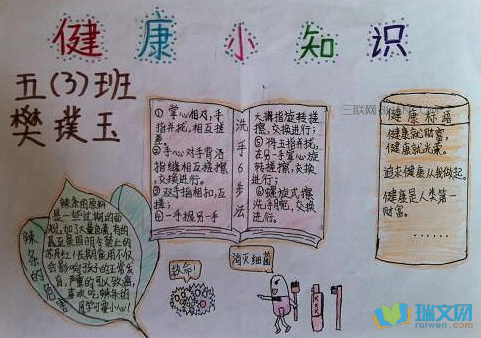 健康小知识
五(3)班
樊璞玉
三联网
洗手6步法
①掌心相对,手
指并拢,相互搓
揉。
②手心对手背沿
指缝相互搓擦,
交换进行。
③双手指相扣,互
搓;
④一手握另一手
大拇指旋转搓
擦,交换进行;
⑤将五指并拢,
在另一手掌心旋
转搓擦,交换
进行;
⑥螺旋式擦
洗手腕,交换
进行。
健康标语
健康就是财富,
健康就是光荣。
追求健康从我做起。
健康是人类第一
财富。
……
辣条的危害
辣条的原料
是一些过期的面
粉,加了大量色素,有的
甚至是国明令禁止的
苏丹红!长期食用不仅
会影响孩子的正常发
育,严重的可以致癌,
喜欢吃辣条的
同学可要小心!
救命!
消灭细菌
瑞文网
ruiwen.com